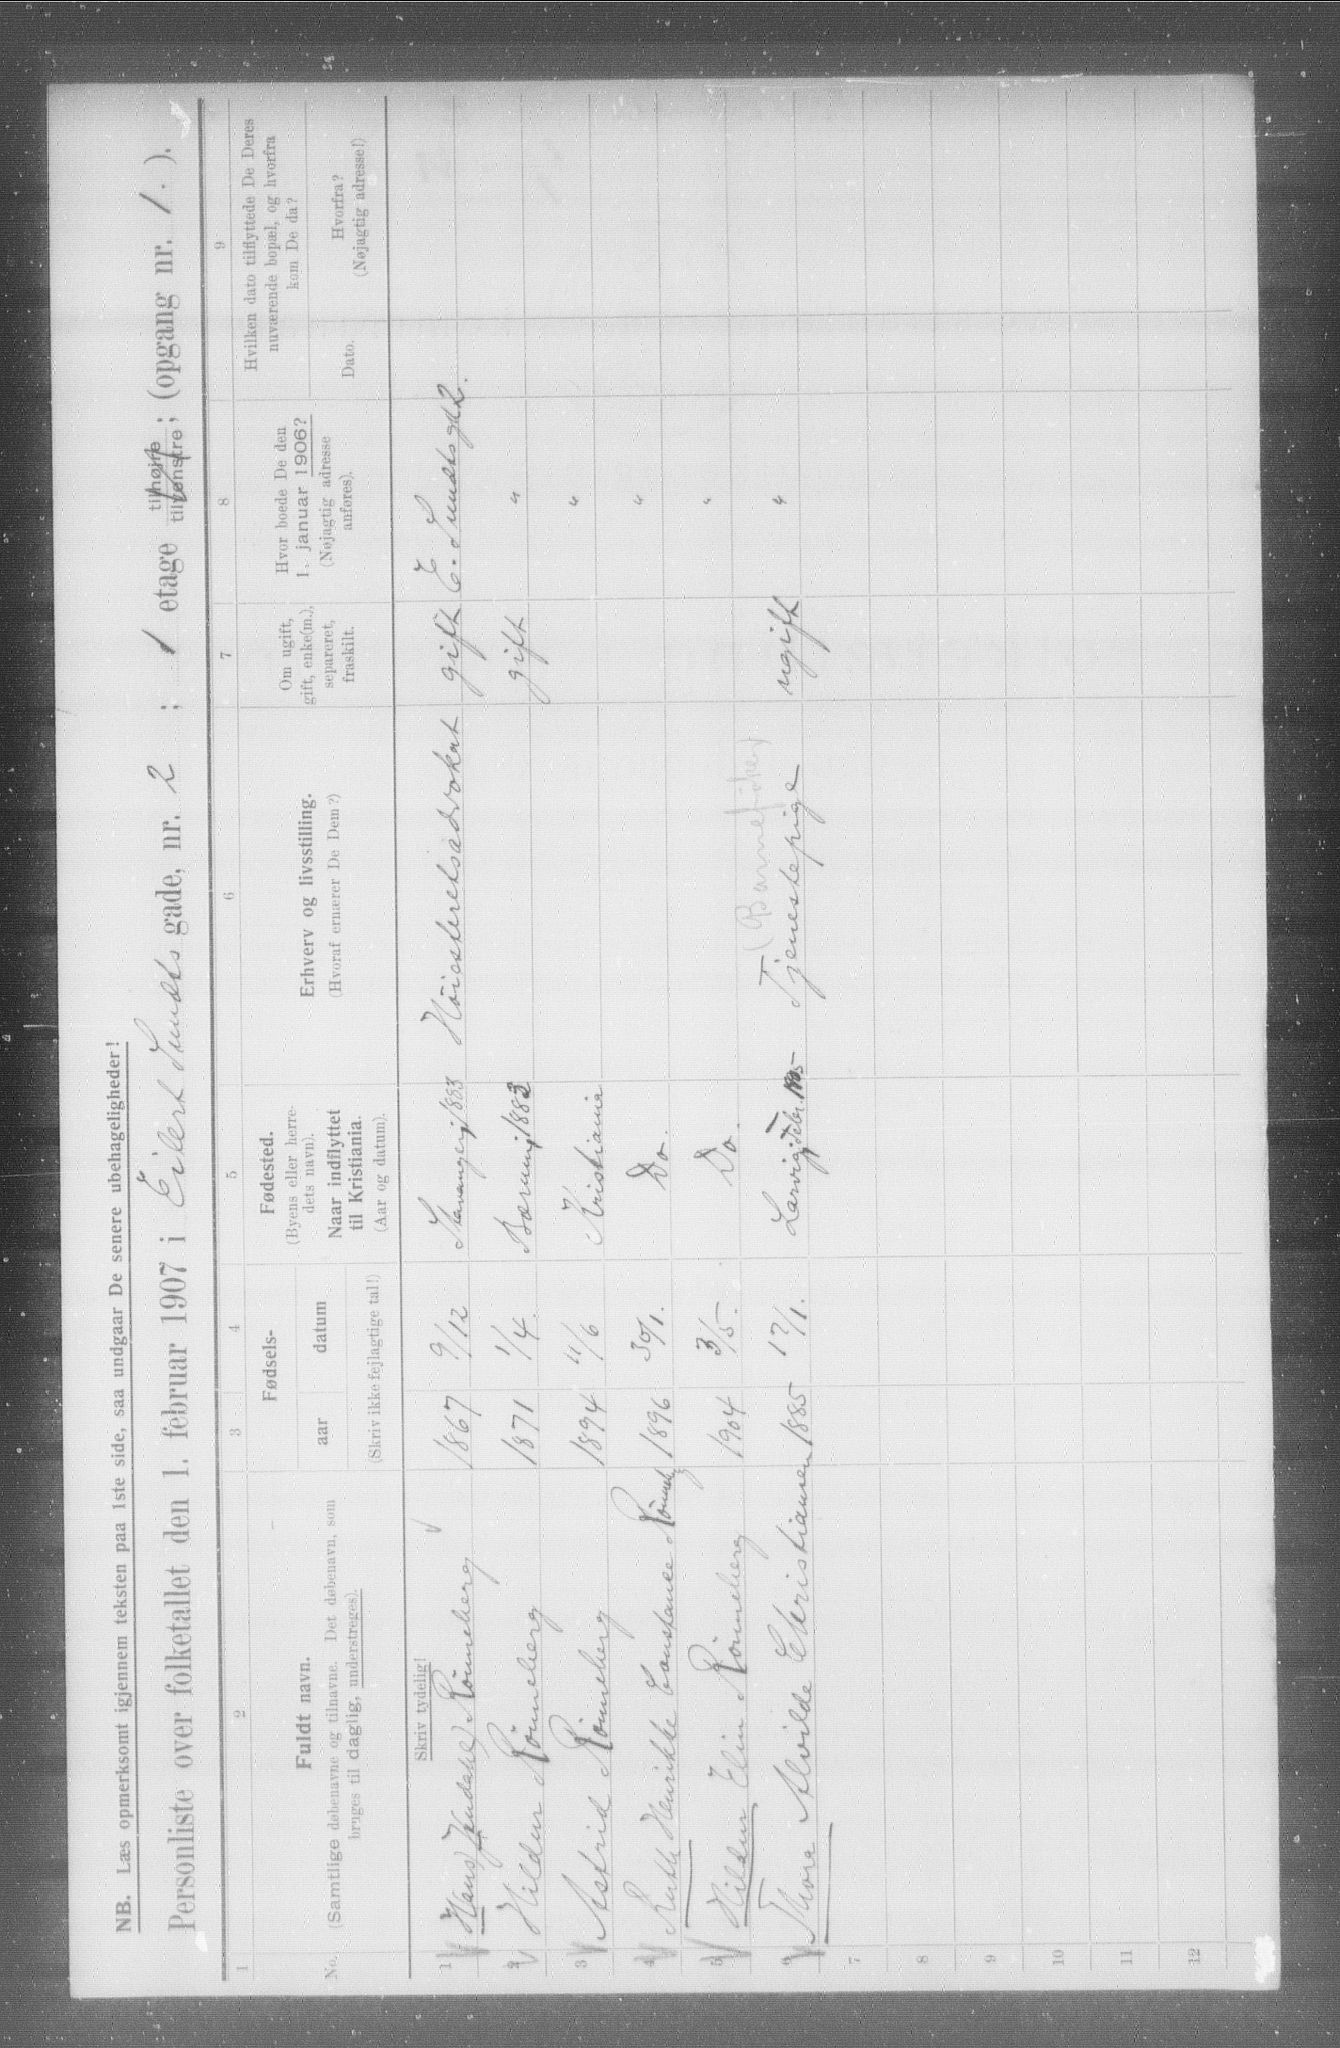 NB. Læs opmerksomt igjennem teksten paa 1ste side, saa undgaar De senere ubehageligheder!
Personliste over folketallet den 1. februar 1907 i Eilert Sundts gade, nr. 2 ; 1 etage tilhøire tilvenstre ; (opgang nr. 1. ).
1 2 3 4 5 6 7 8 9
No. Fuldt navn. (Samtlige døbenavne og tilnavne. Det døbenavn, som bruges til daglig, understreges). Fødsels- aar datum (Skriv ikke fejlagtige tal!) Fødested. (Byens eller herredets navn). Naar indflyttet til Kristiania. (Aar og datum). Erhverv og livsstilling. (Hvoraf ernærer De Dem?) Om ugift, gift, enke(m.), separeret, fraskilt. Hvor boede De den 1. januar 1906? (Nøjagtig adresse anføres). Hvilken dato tilflyttede De Deres nuværende bopæl, og hvorfra kom De da? Dato. Hvorfra? (Nøjagtig adresse!)
Skriv tydelig!
1 Hans Rönneberg 1867 9/12 Stavanger 1883 Höiesteretsadvokat gift E. Sundts gd 2.
2 Hildur Rönneberg 1871 1/4. Bærum 1883 gift "
3 Astrid Rönneberg 1894 11/6 Kristiania "
4 Ruth Henrikke Constance Rönneberg 1896 30/1. Do. "
5 Hildur Elin Rönneberg 1904 3/5. Do. "
6 Thora Alvilde Christiansen 1885 17/1. Larvig, febr. 1905 Tjenestepige ugift "
7
8
9
10
11
12